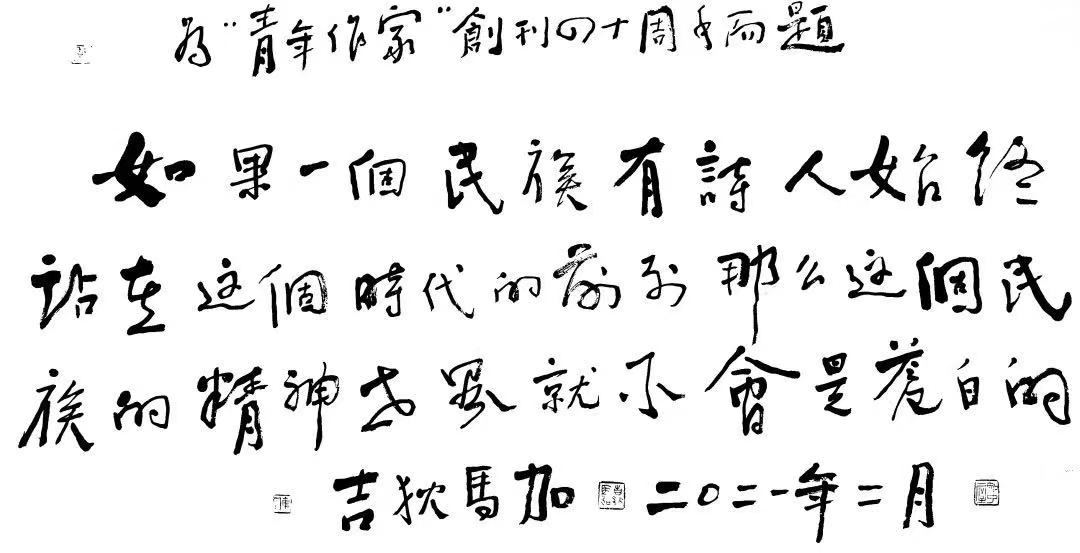 为“青年作家”創刊四十周年而題
如果一個民族有詩人始終
站在这個時代的前列那么这個民
族的精神世界就不會是蒼白的
吉狄馬加 二〇二一年二月